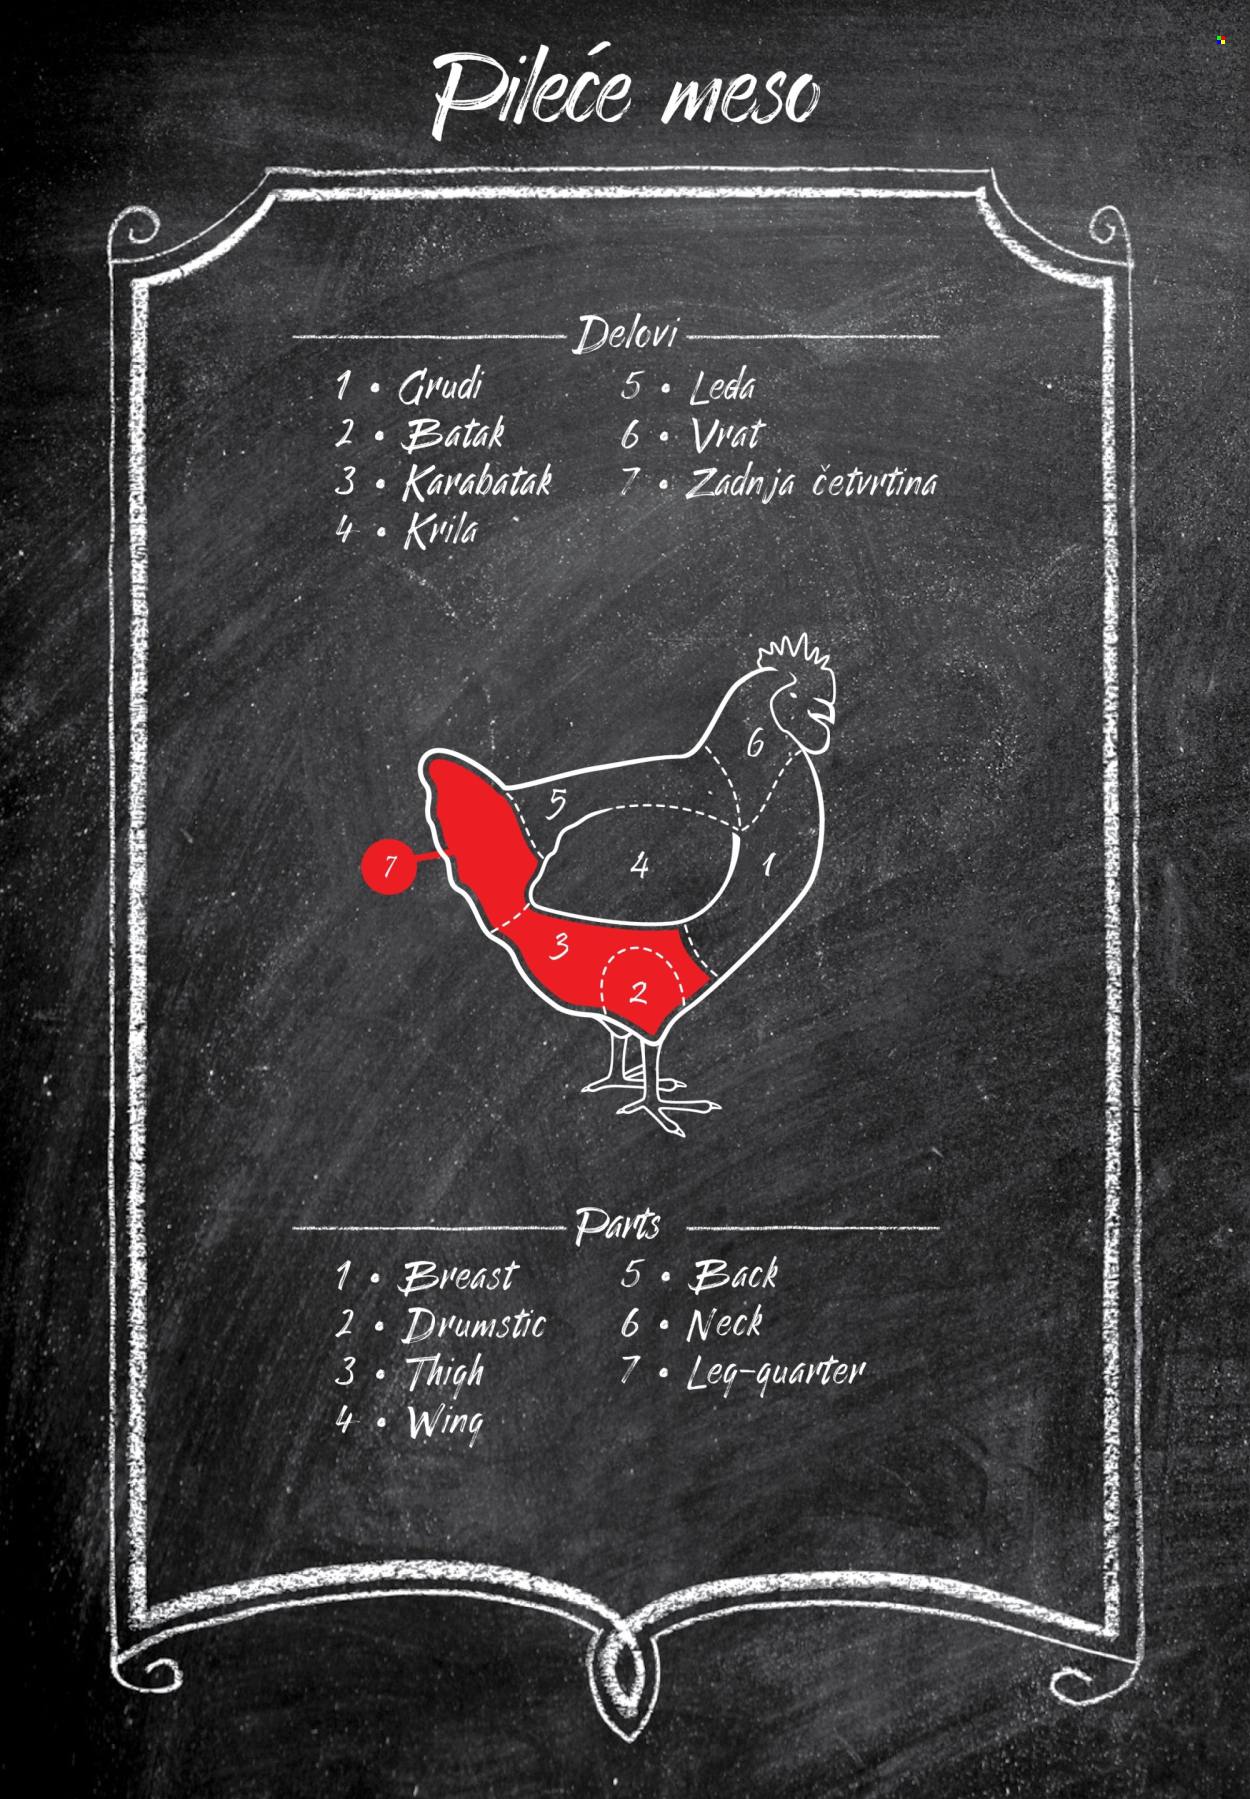 Pileće meso
Delovi
1 • Grudi
2 • Batak
3 • Karabatak
4 • Krila
5 • Leđa
6 • Vrat
7 • Zadnja četvrtina
6
5
4
1
7
3
2
Parts
1 • Breast
2 • Drumstic
3 • Thigh
4 • Wing
5 • Back
6 • Neck
7 • Leg-quarter